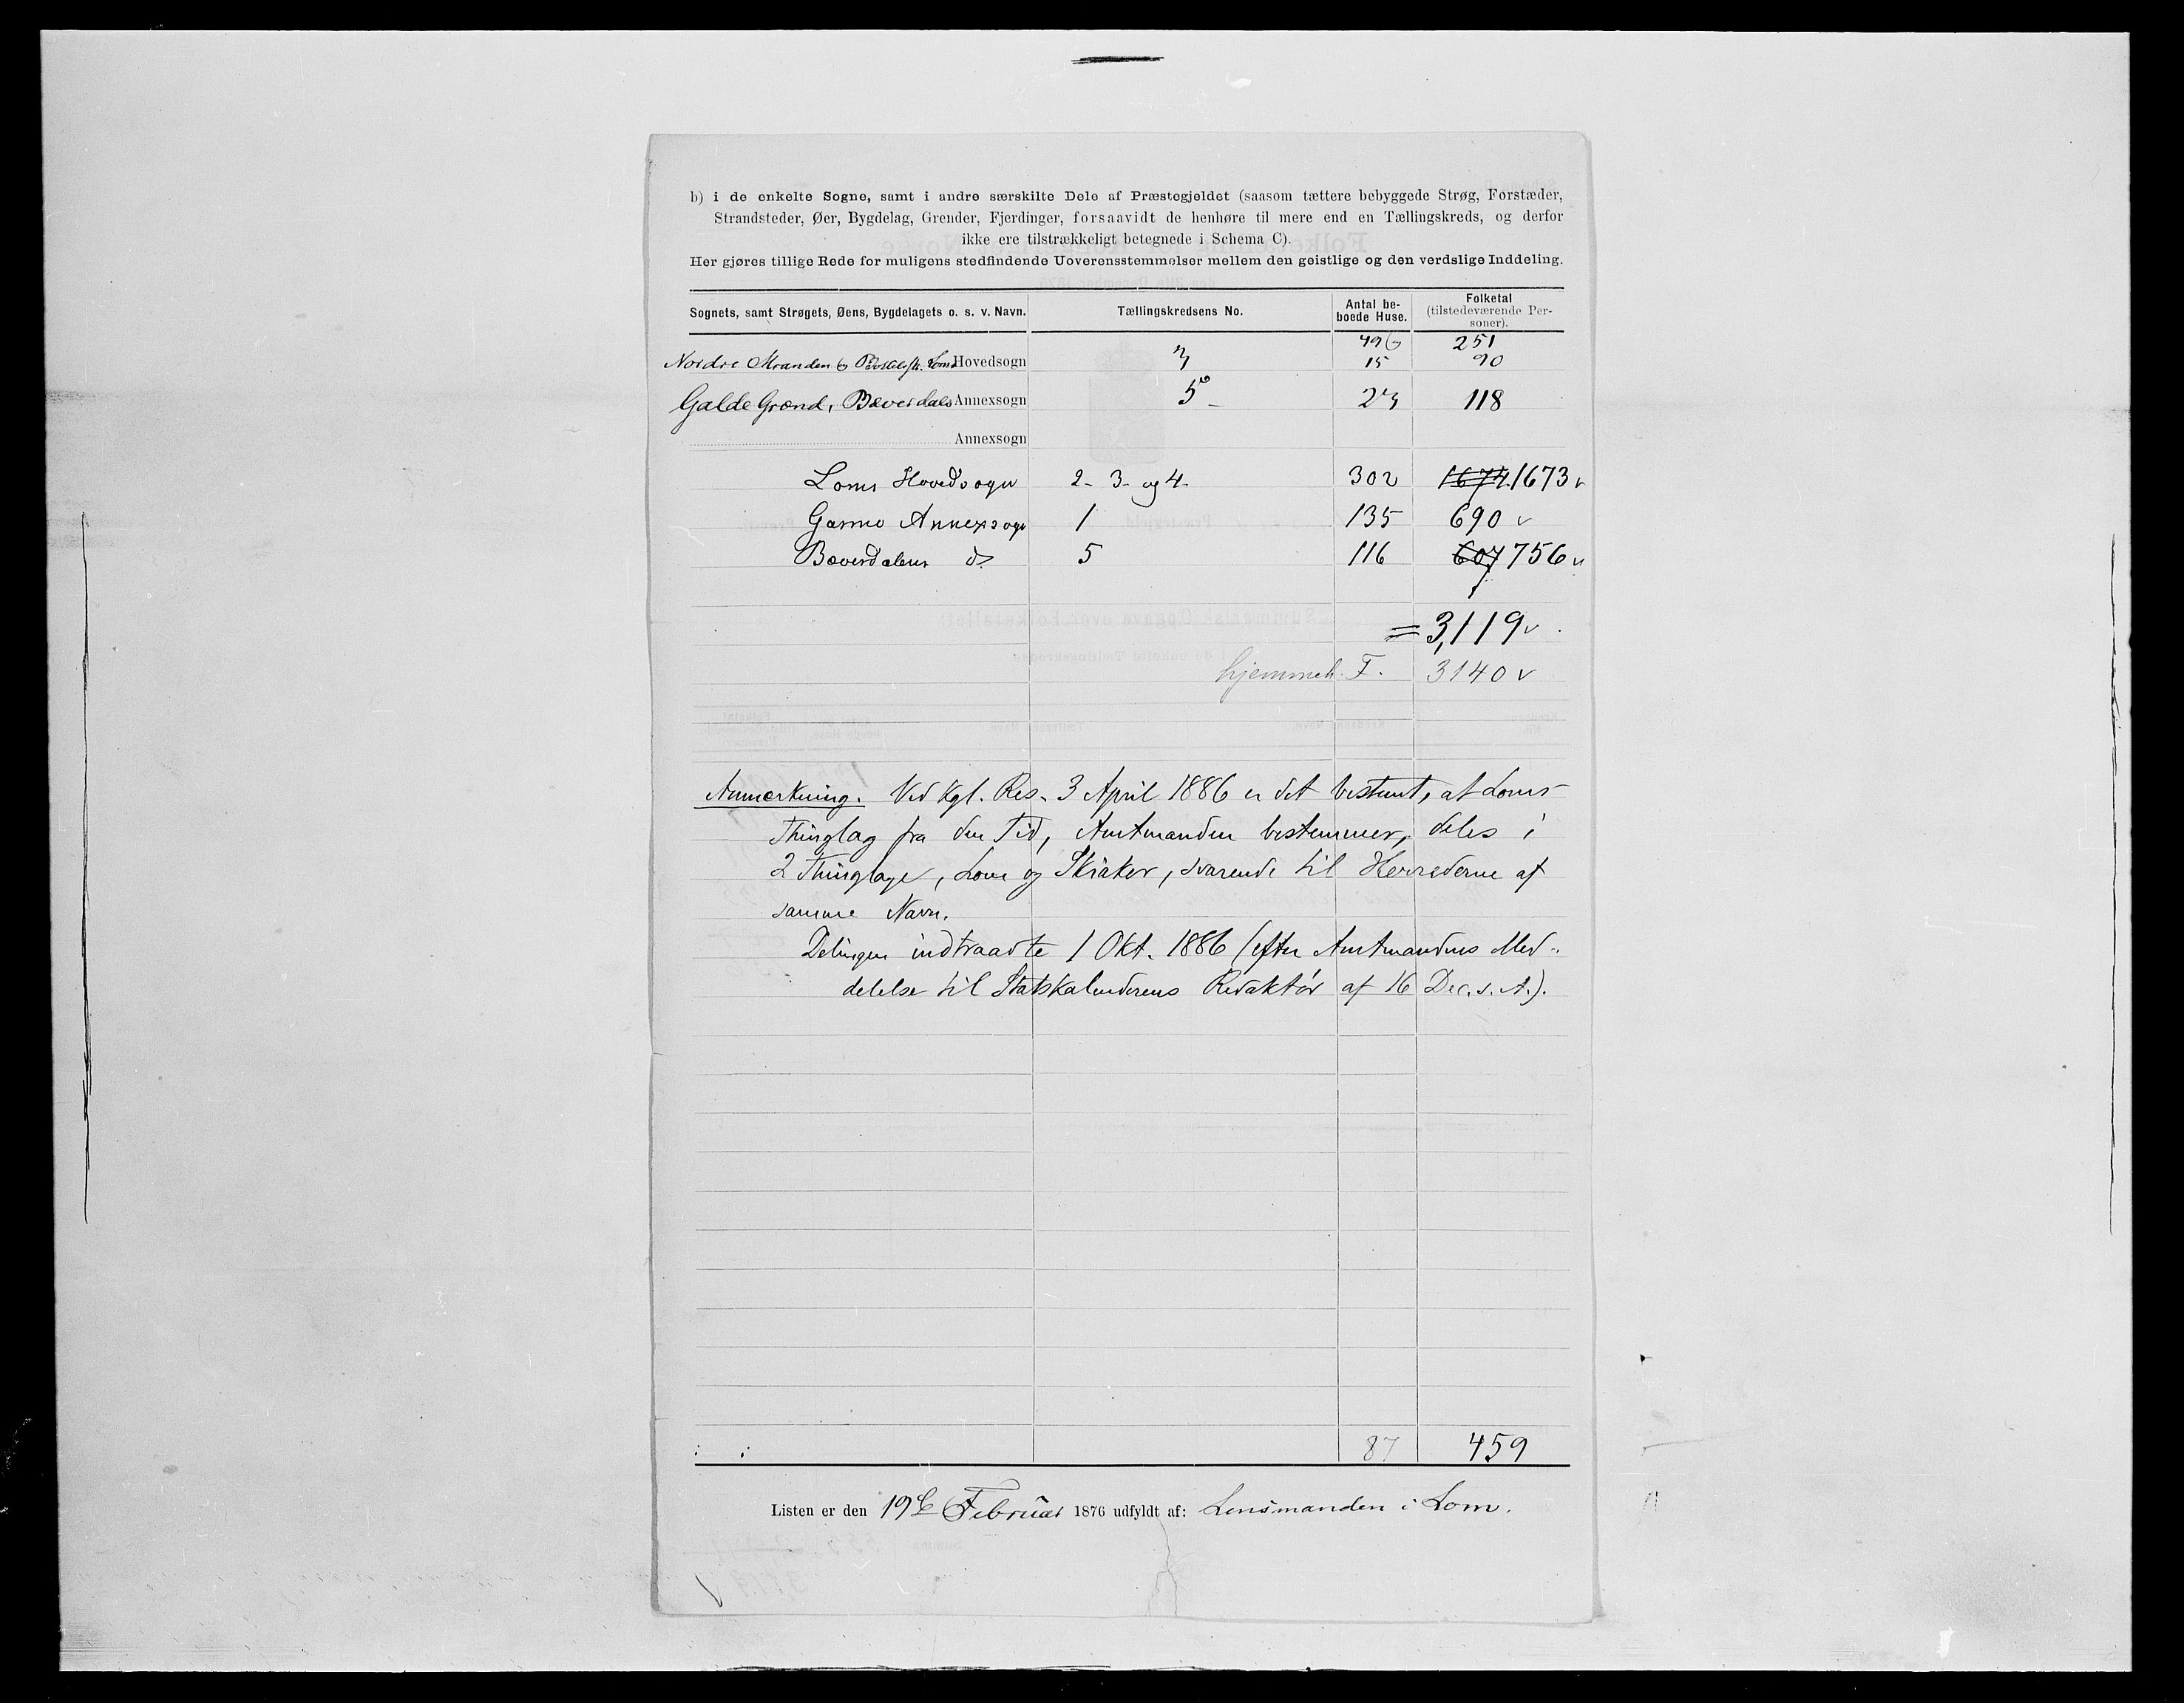 b) i de enkelte Sogne, samt i andre særskilte Dele af Præstegjeldet (saasom tættere bebyggede Strøg, Forstæder,
Strandsteder, Øer, Bygdelag, Grender, Fjerdinger, forsaavidt de henhøre til mere end en Tællingskreds, og derfor
ikke ere tilstrækkeligt betegnede i Schema C).
Her gjøres tillige Rede for muligens stedfindende Uoverensstemmelser mellem den geistlige og den verdslige Inddeling.
Sognets, samt Strøgets, Øens, Bygdelagets o. s. v. Navn. Tællingskredsens No. Antal be-boede Huse. Folketal (tilstedeværende Per-soner).
49 251
Nordre Stranden Lom Hovedsogn 3 15 90
Galde Grænd, Bæverdals Annexsogn 5 23 118
Annexsogn
Loms Hovedsogn 2- 3- og 4- 302 1674 1673 v
Garmo Annexsogn 1 135 690 v
Bæverdalens do 5 116 607 756 v
= 3,119 v
hjemmeh. F. 3140 v
Anmærkning. Ved Kgl. Res. 3 April 1886 er det bestemt, at Loms
Thinglag fra den Tid, Amtmanden bestemmer, deles i
2 Thinglage, Lom og Skiaker, svarende til Herrederne af
samme Navn.
Delingen indtraadte 1 Okt. 1886 (efter Amtmandens Med-
delelse til Statskalenderens Redaktør af 16 Dec. s. A.).
87 459
Listen er den 19de Februar 1876 udfyldt af: Lensmanden i Lom.